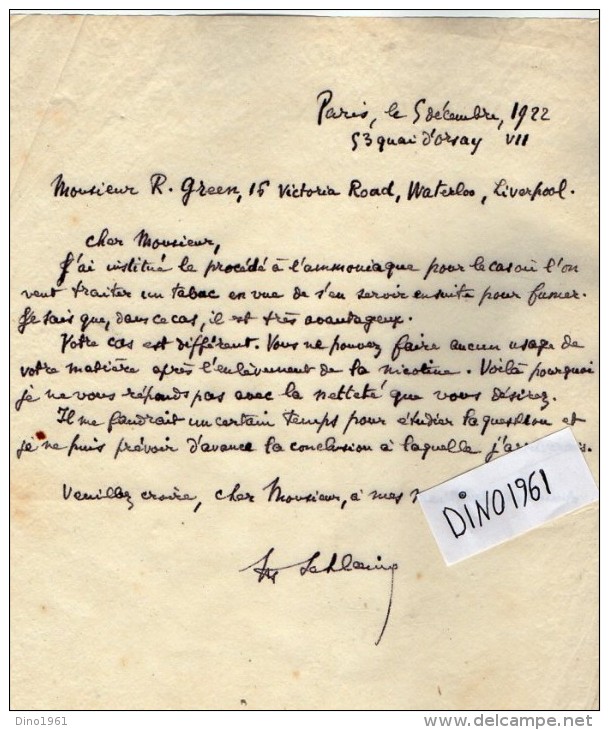 Paris, le 5 décembre, 1922
53 quai d'orsay VII
Monsieur R. Green, 16 Victoria Road, Waterloo, Liverpool.
cher Monsieur,
J'ai institué le procédé à l'ammoniaque pour le cas où l'on
veut traiter un tabac en vue de s'en servir ensuite pour fumer.
Je sais que, dans ce cas, il est très avantageux.
Votre cas est différent. Vous ne pouvez faire aucun usage de
votre matière après l'enlèvement de la nicotine. Voilà pourquoi
je ne vous réponds pas avec la netteté que vous désirez.
Il me faudrait un certain temps pour étudier la question et
je ne puis prévoir d'avance la conclusion à laquelle
Veuillez croire, cher Monsieur, à mes
DINO1961
Schloesing
Dino1961
www.delcampe.net